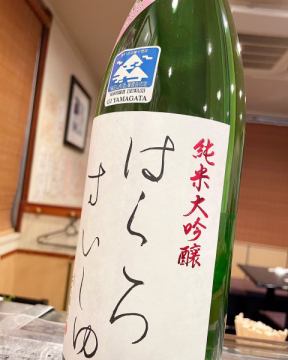 GI YAMAGATA
純米大吟醸
はくろ
すいしゅ